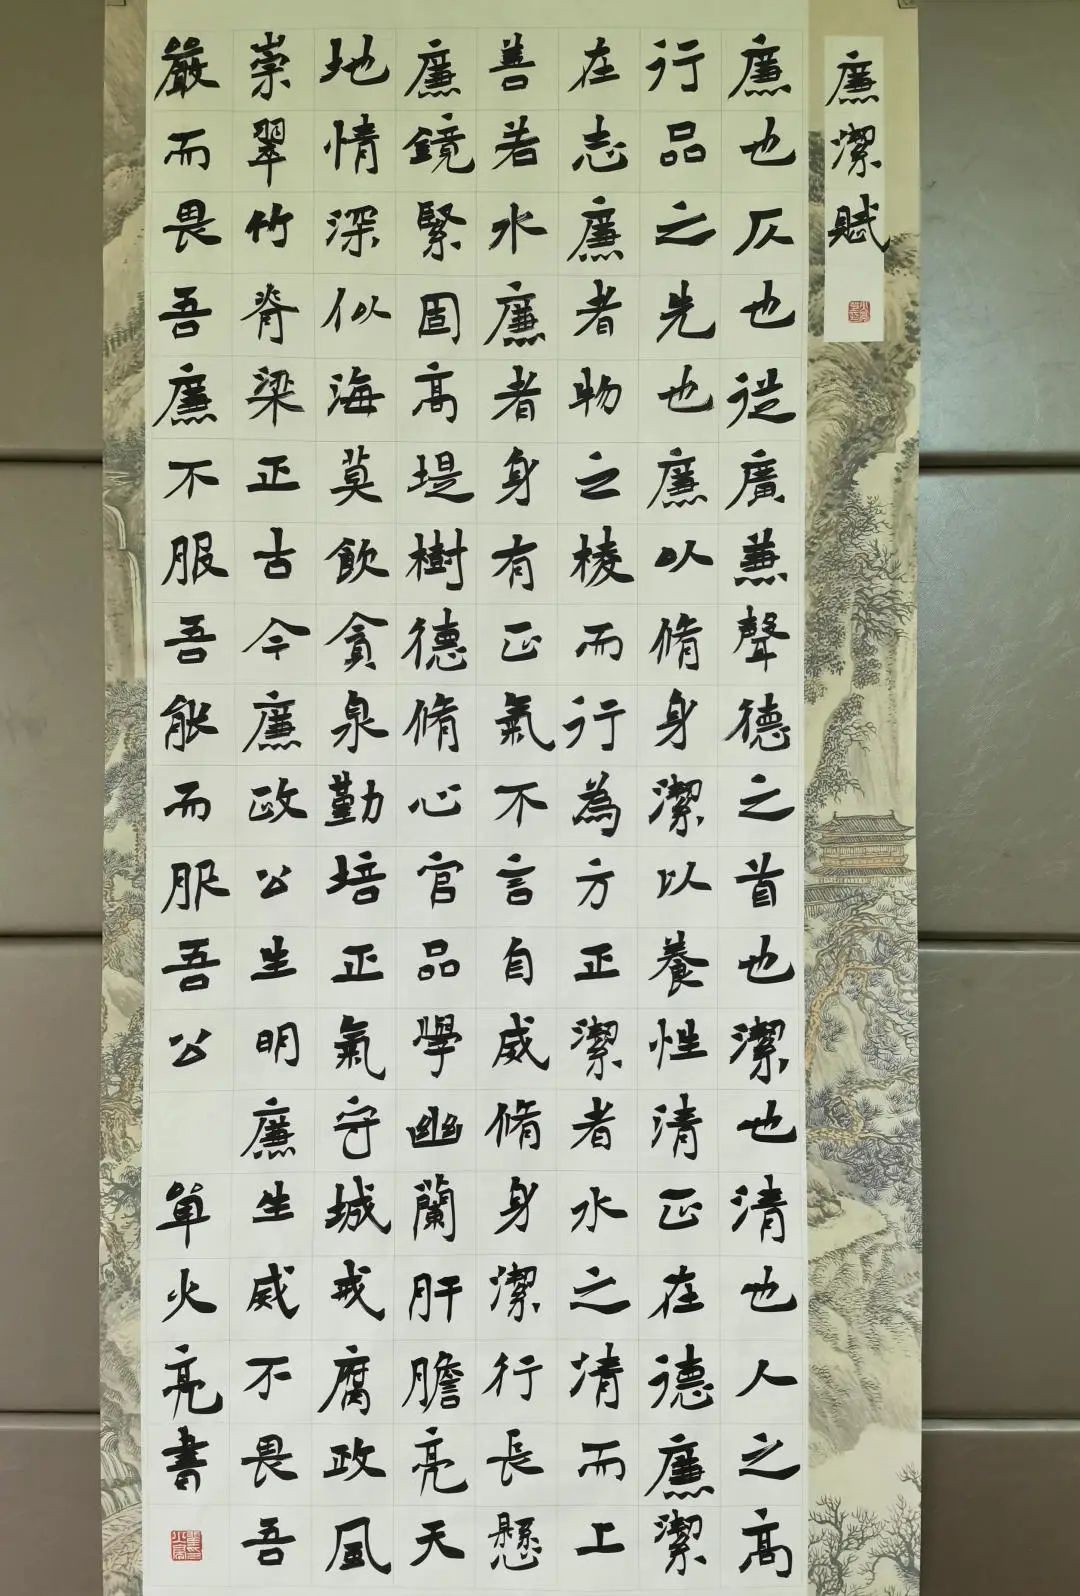 廉潔賦
廉也仄也從廣兼聲德之首也潔也清也人之高
行品之先也廉以脩身潔以養性清正在德廉潔
在志廉者物之棱而行為方正潔者水之清而上
善若水廉者身有正氣不言自威脩身潔行長懸
廉鏡緊固高堤樹德脩心官品學幽蘭肝膽亮天
地情深似海莫飲貪泉勤培正氣守城戒腐政風
崇翠竹脊梁正古今廉政公生明廉生威不畏吾
嚴而畏吾廉不服吾能而服吾公 單火亮書